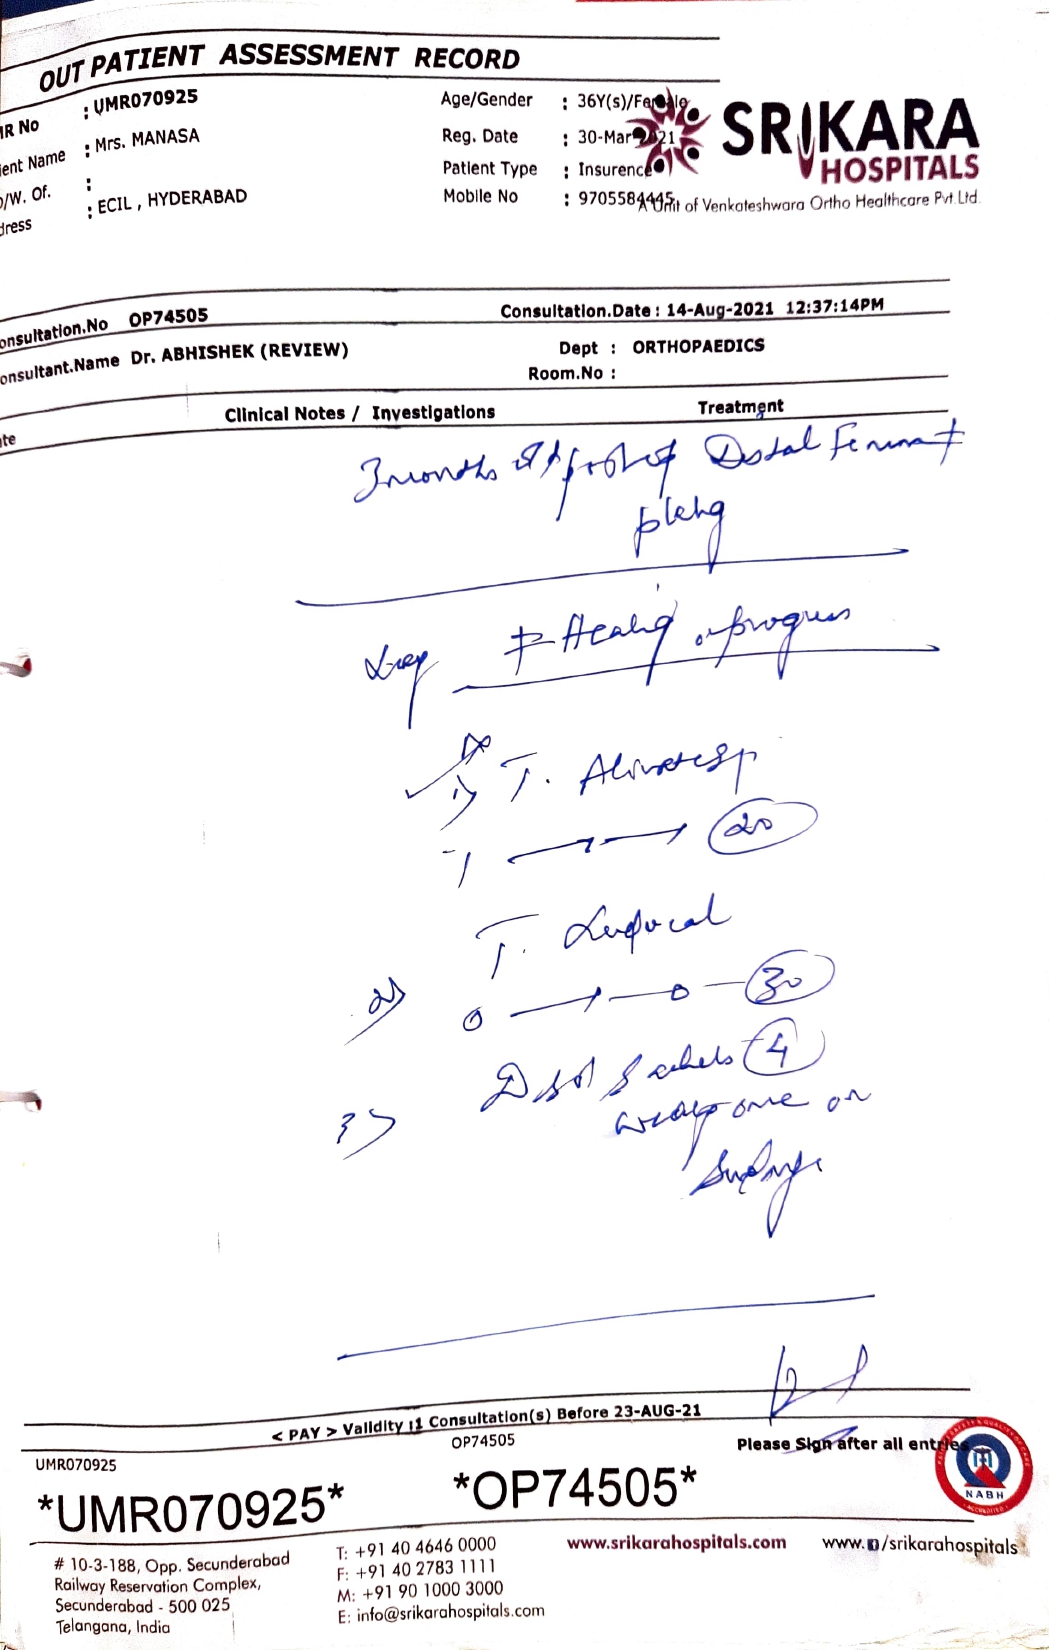 OUT PATIENT ASSESSMENT RECORD
MR No : UMR070925
Age/Gender : 36Y(s)/Female
ient Name : Mrs. MANASA
Reg. Date : 30-Mar-2021
/W. Of. :
Patient Type : Insurence
dress : ECIL , HYDERABAD
Mobile No : 9705584445
SRIKARA
HOSPITALS
A Unit of Venkateshwara Ortho Healthcare Pvt.Ltd.
onsultation.No OP74505
Consultation.Date : 14-Aug-2021 12:37:14PM
onsultant.Name Dr. ABHISHEK (REVIEW)
Dept : ORTHOPAEDICS
Room.No :
te
Clinical Notes / Investigations
Treatment
3 months Distal Femur
plating
Xray Healing progress
1) T.
20
2) T.
0 — 1 — 0 — 30
3) Sachets 4
weekly one on
Sunday
< PAY > Validity :1 Consultation(s) Before 23-AUG-21
OP74505
Please Sign after all entries
UMR070925
*UMR070925*
*OP74505*
NABH
# 10-3-188, Opp. Secunderabad
Railway Reservation Complex,
Secunderabad - 500 025
Telangana, India
T: +91 40 4646 0000
F: +91 40 2783 1111
M: +91 90 1000 3000
E: info@srikarahospitals.com
www.srikarahospitals.com
www. /srikarahospitals